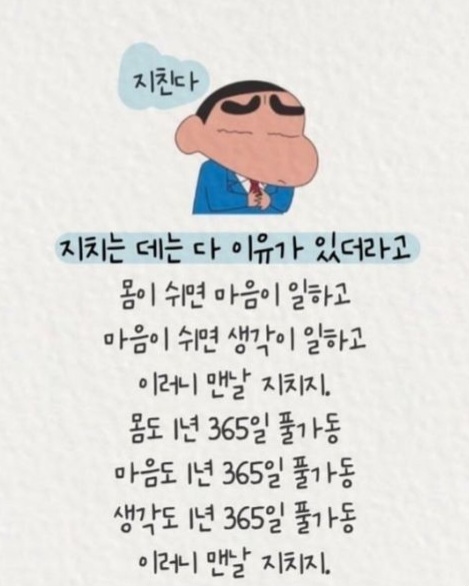 지친다
지치는 데는 다 이유가 있더라고
몸이 쉬면 마음이 일하고
마음이 쉬면 생각이 일하고
이러니 맨날 지치지.
몸도 1년 365일 풀가동
마음도 1년 365일 풀가동
생각도 1년 365일 풀가동
이러니 맨날 지치지.